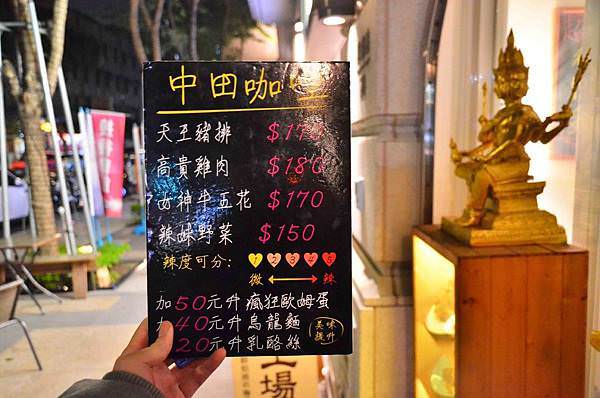 中田咖
天王豬排 $170
高貴雞肉 $180
女神牛五花 $170
辣妹野菜 $150
辣度可分: 1 2 3 4 5
微 辣
加50元升瘋狂歐姆蛋
加40元升烏龍麵
20元升乳酪絲
美味
提升
場